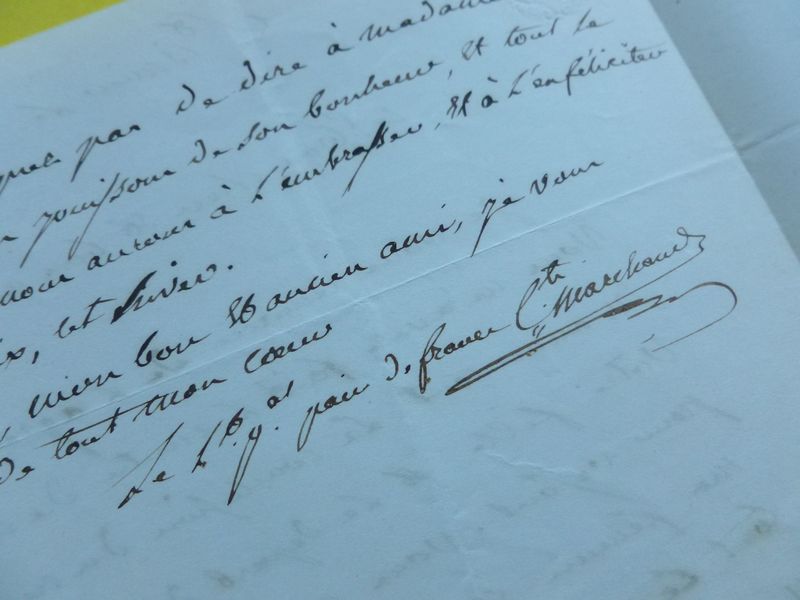 pas de dire à madame
jouissons de son bonheur, et tout le
nous aurons à l'embrasser, et à l'en féliciter
cet hiver.
mon bon et ancien ami, je vous
de tout mon cœur
Le Lt. gal. pair de france Cte. Marchand